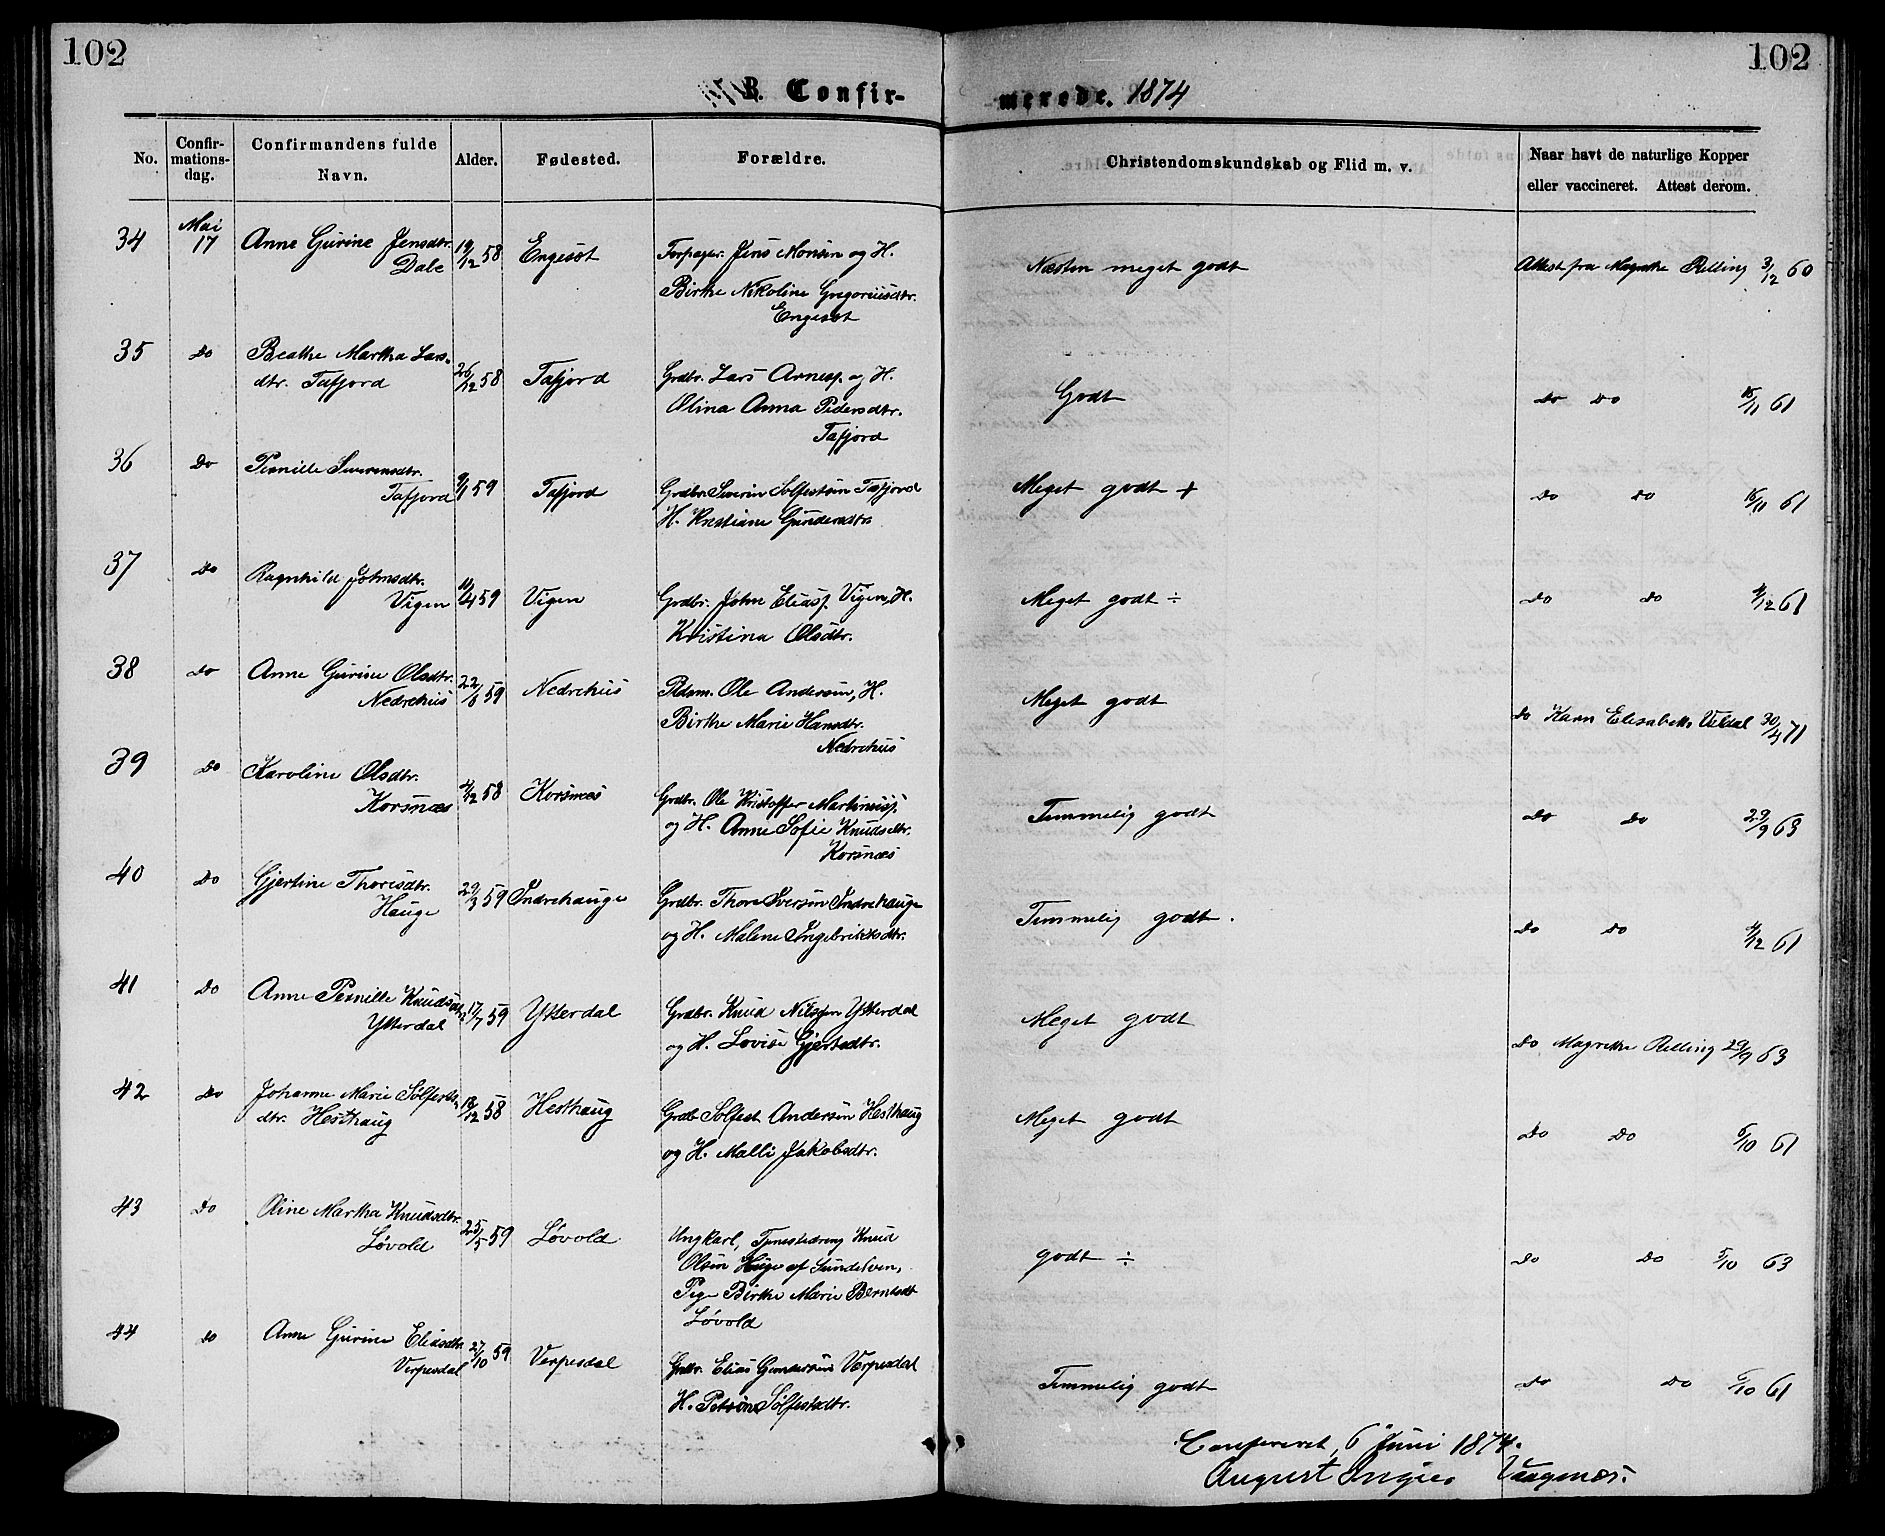 102
102
B. Confir-
merede. 1874
No.
Confir-
mations-
dag.
Confirmandens fulde
Navn.
Alder.
Fødested.
Forældre.
Christendomskundskab og Flid m. v.
Naar havt de naturlige Kopper
eller vaccineret. Attest derom.
34 Mai 17 Anne Gurine Jensdtr. 19/12 58 Engeset Jens Monsen og H. Næsten meget godt Attest fra Magrethe Relling 3/12 60
Dale Birthe Nikoline Gregoriusdtr.
Engeset
35 Do Beathe Martha Lars- 26/12 58 Tafjord Grdbr. Lars Arnesp. og H. Godt Do Do 15/11 61
dtr. Tafjord Olina Anna Pedersdtr.
Tafjord
36 Do Pernille Severensdtr. 9/1 59 Tafjord Grdbr. Severin Solfestsøn Tafjord Meget godt + Do Do 15/10 61
Tafjord H. Kristiane Gundersdtr.
37 Do Ragnhild Johnsdtr. 11/4 59 Vigen Grdbr. John Eliasp. Vigen, H. Meget godt ÷ Do Do 4/12 61
Vigen Kristina Olsdtr.
38 Do Anne Gurine Olsdtr. 59 Nedrehus Pldsm. Ole Andersen, H. Meget godt Do Karn Elisabeth 30/4 71
Nedrehus Birthe Marie Hansdtr.
Nedrehus
39 Do Karoline Olsdtr. 4/12 58 Korsnæs Grdbr. Ole Kristoffer Martinusp. Temmelig godt Do Do 29/9 63
Korsnæs og H. Anne Sofie Knudsdtr.
Korsnæs
40 Do Gjertine Thoresdtr. 29/3 59 Indrehauge Grdbr. Thore Iversøn Indrehauge Temmelig godt. Do Do 4/12 61
Hauge og H. Malene Ingebrietsdtr.
41 Do Anne Pernille Knudsdtr. 17/7 59 Ytterdal Grdbr. Knud Nilssøn Ytterdal Meget godt Do Magrethe Relling 29/9 63
Ytterdal og H. Lovise Gjertsdtr.
42 Do Johanne Marie Solfests- 18/12 58 Hesthaug Grdb. Solfest Andersøn Hesthaug Meget godt Do Do 6/10 61
dtr. Hesthaug og H. Malli Jakobsdtr.
43 Do Oline Martha Knudsdtr. 25/5 59 Løvold Ungkarl, Tjenestedreng Knud godt ÷ Do Do 5/10 63
Løvold Olsen Hauge af Sundelven,
Pige Birthe Marie Berntsdt
Løvold
44 Do Anne Gurine Eliasdtr. 27/10 59 Verpesdal Grdbr. Elias Gundersøn Verpesdal Temmelig godt Do Do 61
Verpesdal H. Solfestsdtr.
Confereret, 6 Juni 1874.
August Vaagenæs.